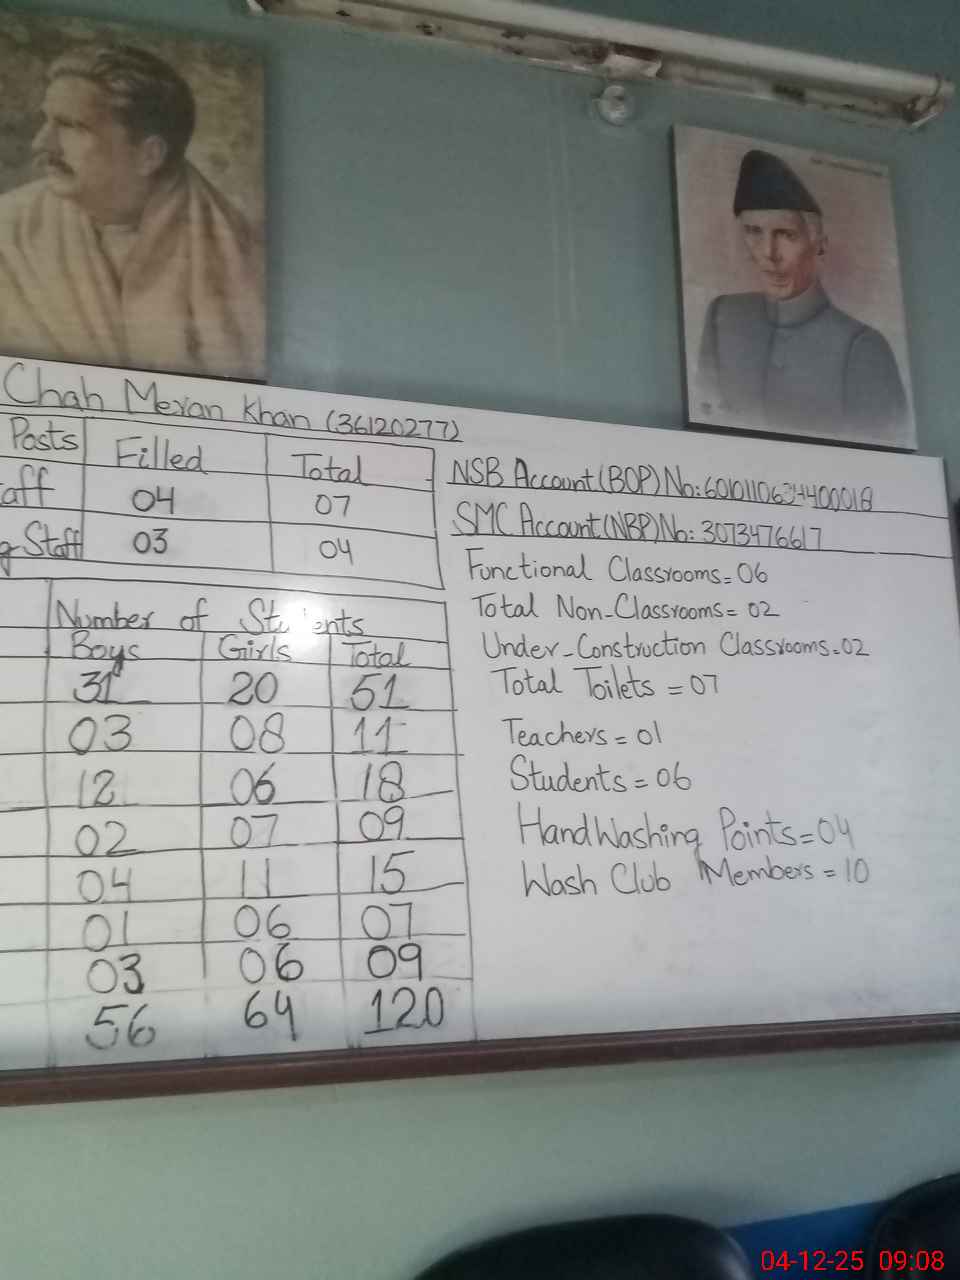 Chah Meran Khan (36120277)
Posts Filled Total
aff 04 07
g Staff 03 04
Number of Students
Boys Girls Total
31 20 51
03 08 11
12 06 18
02 07 09
04 11 15
01 06 07
03 06 09
56 64 120
NSB Account (BOP) No:
SMC Account (NBP) No: 3073476617
Functional Classrooms = 06
Total Non-Classrooms = 02
Under-Construction Classrooms = 02
Total Toilets = 07
Teachers = 01
Students = 06
HandWashing Points = 04
Wash Club Members = 10
04-12-25 09:08